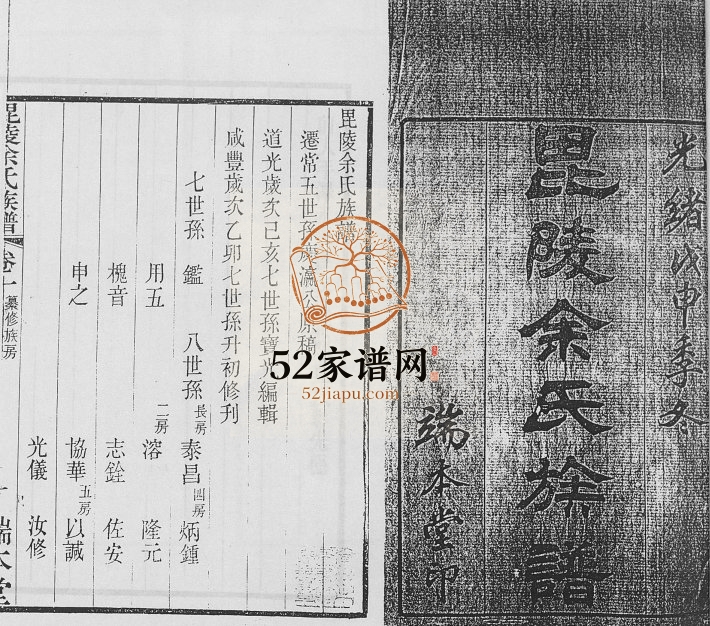 光緒戊申季冬
毘陵余氏族譜
端本堂印
毘陵余氏族譜
遷常五世孫慶瀛公原稿
道光歲次己亥七世孫寶光編輯
咸豐歲次乙卯七世孫升初修刋
七世孫 鑑 八世孫 長房 泰昌 四房 炳鍾
用五 二房 溶 隆元
槐音 志銓 佐安
申之 協華 五房 以諴
光儀 汝修
毘陵余氏族譜 卷一 纂修族房 端本堂
52家谱网
52jiapu.com